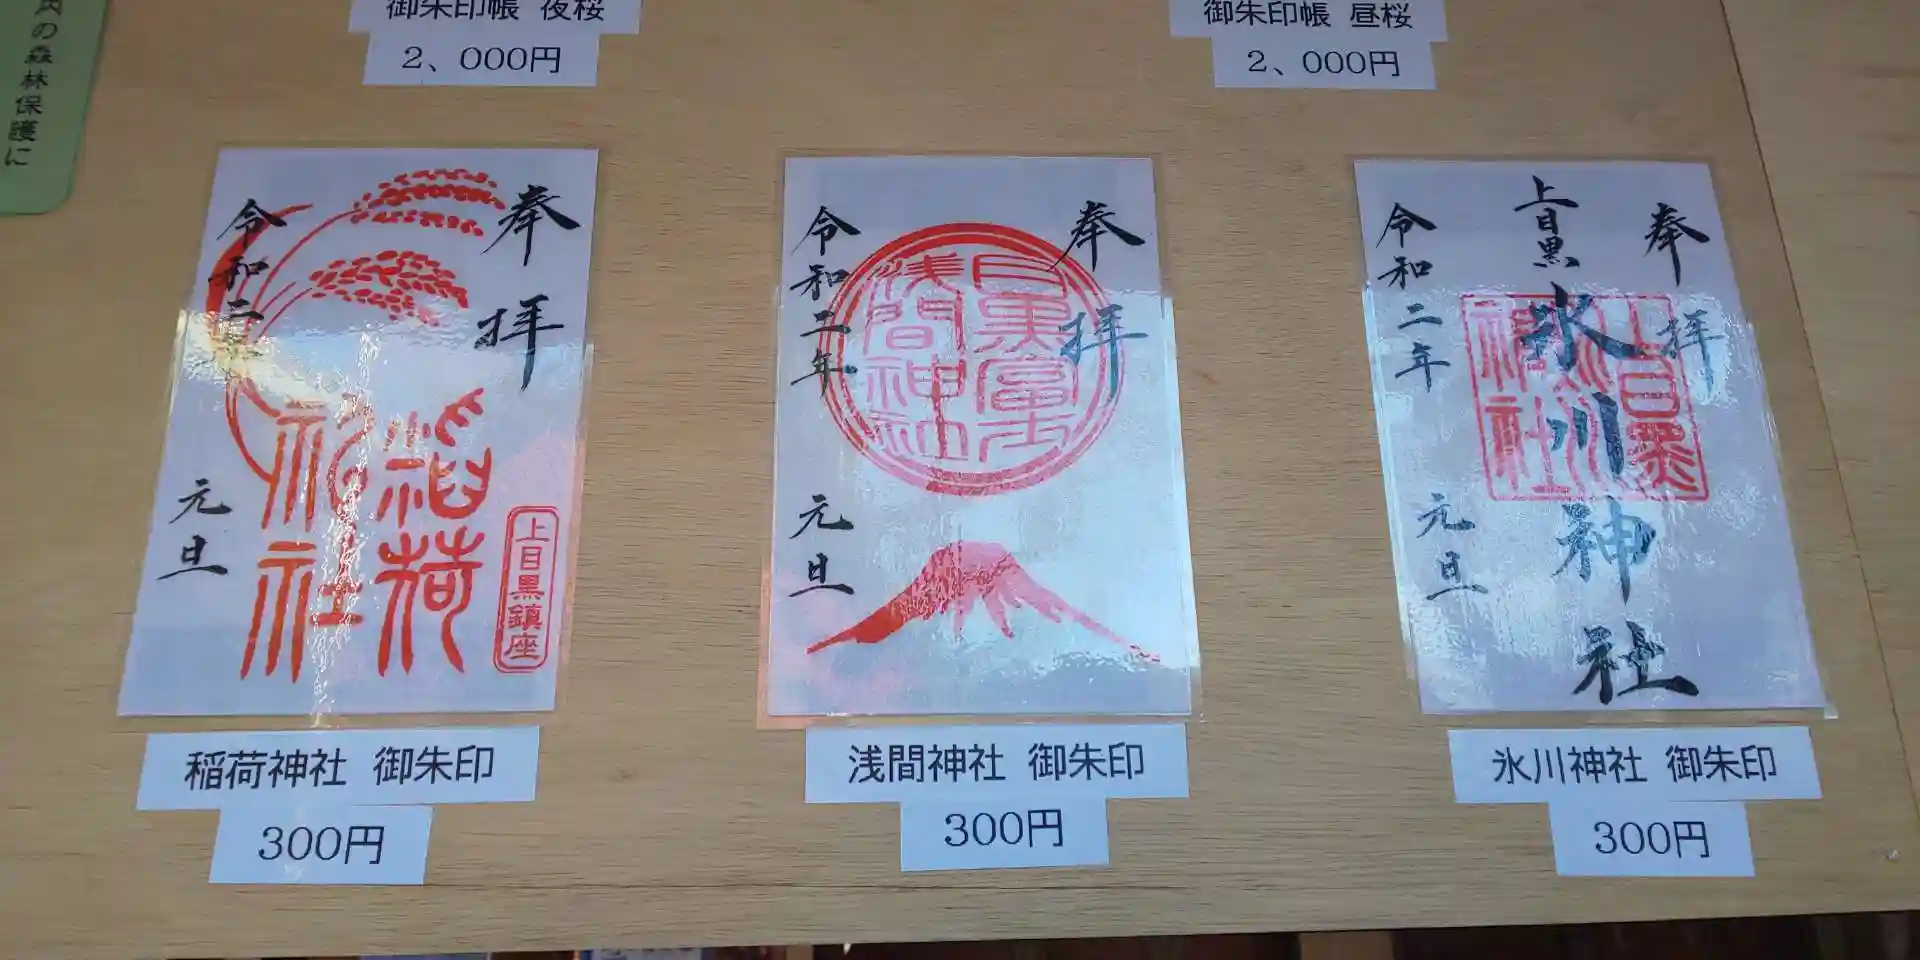 の森林保護に
御朱印帳 夜桜
2、000円
御朱印帳 昼桜
2、000円
奉拝
令和二年
元旦
稲荷
神社
上目黒鎮座
稲荷神社 御朱印
300円
奉拝
目黒富士
浅間神社
令和二年
元旦
浅間神社 御朱印
300円
奉拝
上目黒
氷川神社
上目黒
氷川
神社
令和二年
元旦
氷川神社 御朱印
300円